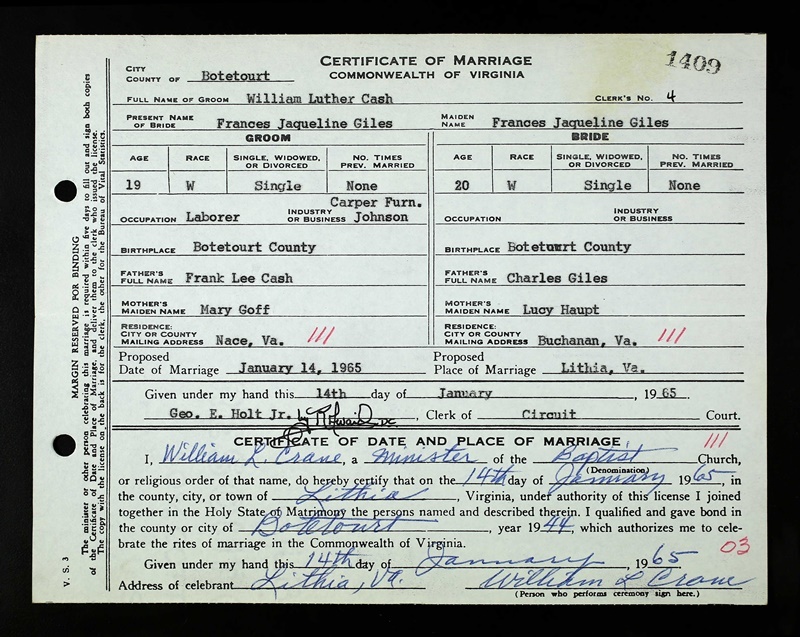 CERTIFICATE OF MARRIAGE
COMMONWEALTH OF VIRGINIA
1409
CITY
COUNTY OF Botetourt
FULL NAME OF GROOM William Luther Cash CLERK'S NO. 4
PRESENT NAME OF BRIDE Frances Jaqueline Giles MAIDEN NAME Frances Jaqueline Giles
GROOM BRIDE
AGE RACE SINGLE, WIDOWED, OR DIVORCED NO. TIMES PREV. MARRIED AGE RACE SINGLE, WIDOWED, OR DIVORCED NO. TIMES PREV. MARRIED
19 W Single None 20 W Single None
OCCUPATION Laborer INDUSTRY OR BUSINESS Carper Furn. Johnson OCCUPATION INDUSTRY OR BUSINESS
BIRTHPLACE Botetourt County BIRTHPLACE Botetourt County
FATHER'S FULL NAME Frank Lee Cash FATHER'S FULL NAME Charles Giles
MOTHER'S MAIDEN NAME Mary Goff MOTHER'S MAIDEN NAME Lucy Haupt
RESIDENCE: CITY OR COUNTY MAILING ADDRESS Nace, Va. 111 RESIDENCE: CITY OR COUNTY MAILING ADDRESS Buchanan, Va. 111
Proposed Date of Marriage January 14, 1965 Proposed Place of Marriage Lithia, Va.
Given under my hand this 14th day of January, 1965
Geo. E. Holt Jr. by DC, Clerk of Circuit Court.
CERTIFICATE OF DATE AND PLACE OF MARRIAGE 111
I, William L. Crane, a minister of the Baptist Church,
(Denomination)
or religious order of that name, do hereby certify that on the 14th day of January 1965, in
the county, city, or town of Lithia, Virginia, under authority of this license I joined
together in the Holy State of Matrimony the persons named and described therein. I qualified and gave bond in
the county or city of Botetourt, year 1944, which authorizes me to cele-
brate the rites of marriage in the Commonwealth of Virginia. 03
Given under my hand this 14th day of January, 1965
Address of celebrant Lithia, Va. William L Crane
(Person who performs ceremony sign here.)
V. S. 3
MARGIN RESERVED FOR BINDING
The minister or other person celebrating this marriage is required within five days to fill out and sign both copies
of the Certificate of Date and Place of Marriage, and deliver them to the clerk who issued the license.
The copy with the license on the back is for the clerk, the other for the Bureau of Vital Statistics.